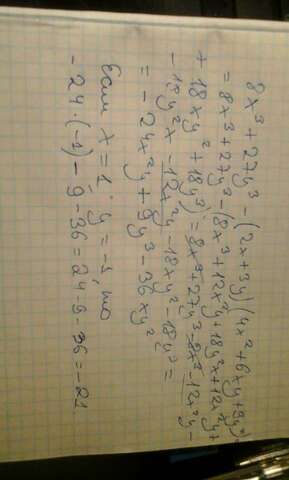 8x³ + 27y³ - (2x+3y)(4x²+6xy+9y²)
= 8x³+27y³-(8x³+12x²y+18y²x+12x²y+
+ 18xy² + 18y³) = 8x³+27y³-8x³-12x²y-
- 18y²x - 12x²y - 18xy² - 18y³ =
= - 24x²y + 9y³ - 36xy²
Если x = 1, y = -1, то
-24·(-1) - 9 - 36 = 24 - 9 - 36 = -21